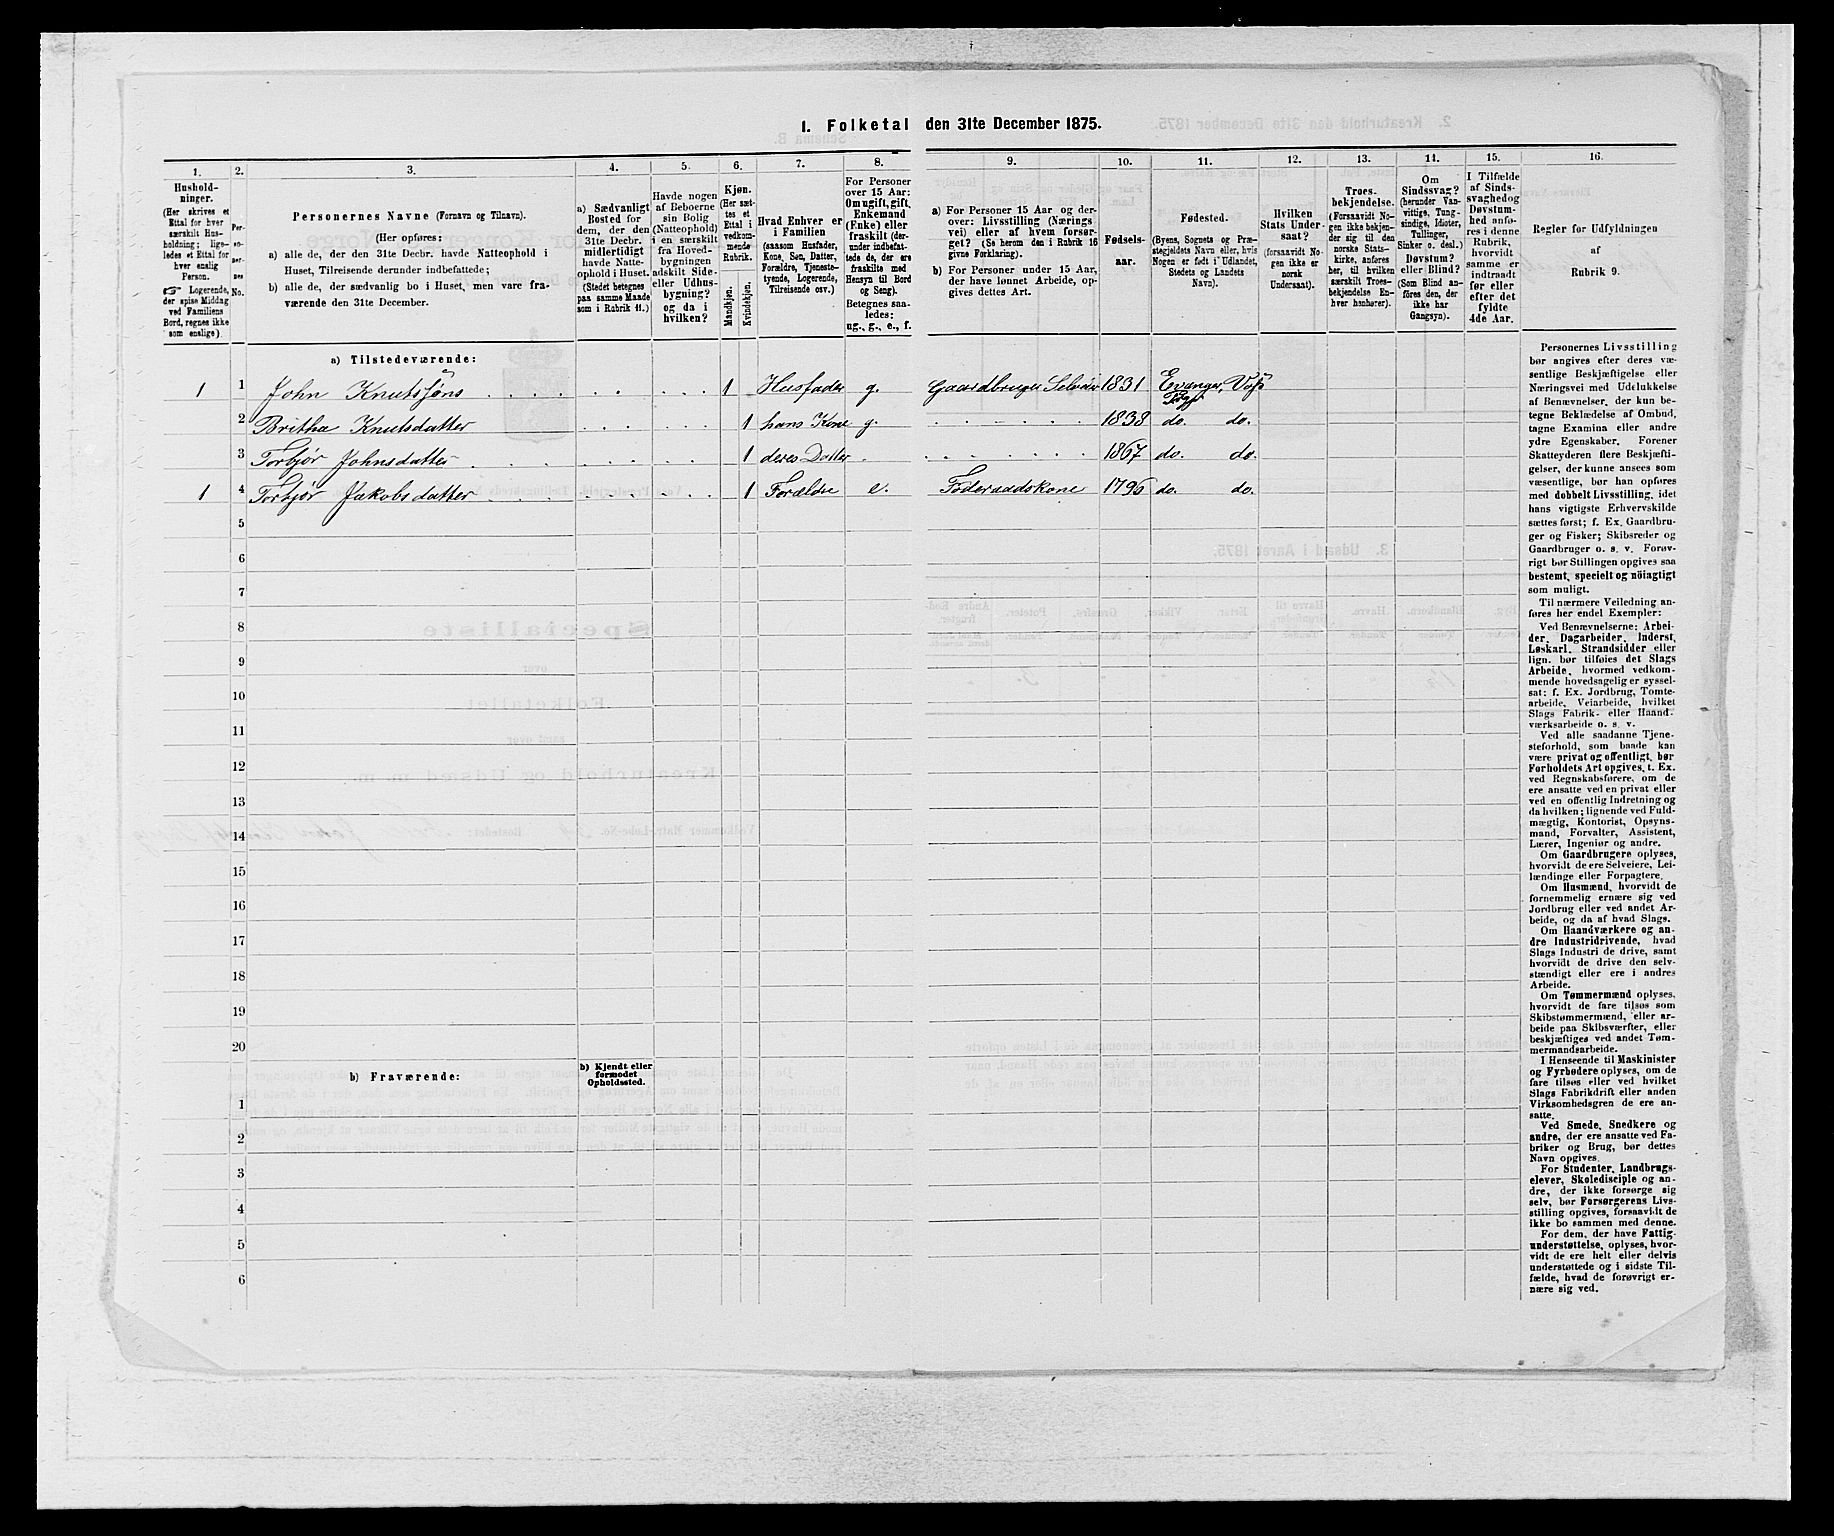 1. Folketal den 31te December 1875.
1. 2. 3. 4. 5. 6. 7. 8. 9. 10. 11. 12. 13. 14. 15. 16.
Hushold-
ninger.
(Her skrives et
Ettal for hver
særskilt Hus-
holdning; lige-
ledes et Ettal for
hver enslig
Person.
☞ Logerende,
der spise Middag
ved Familiens
Bord, regnes ikke
som enslige).
Per-
so-
ner-
nes
No.
Personernes Navne (Fornavn og Tilnavn).
(Her opføres:
a) alle de, der den 31te Decbr. havde Natteophold i
Huset, Tilreisende derunder indbefattede;
b) alle de, der sædvanlig bo i Huset, men vare fra-
værende den 31te December.
a) Sædvanligt
Bosted for
dem, der den
31te Decbr.
midlertidigt
havde Natte-
ophold i Huset.
(Stedet betegnes
paa samme Maade
som i Rubrik 11.)
Havde nogen
af Beboerne
sin Bolig
(Natteophold)
i en særskilt
fra Hoved-
bygningen
adskilt Side-
eller Udhus-
bygning?
og da i
hvilken?
Kjøn.
(Her sæt-
tes et
Ettal i
vedkom-
mende
Rubrik.
Mandkjøn.
Kvindekjøn.
Hvad Enhver er
i Familien
(saasom Husfader,
Kone, Søn, Datter,
Forældre, Tjeneste-
tyende, Logerende,
Tilreisende osv.)
For Personer
over 15 Aar:
Om ugift, gift,
Enkemand
(Enke) eller
fraskilt (der-
under indbefat-
tede de, der ere
fraskilte med
Hensyn til Bord
og Seng).
Betegnes saa-
ledes:
ug., g., e., f.
a) For Personer 15 Aar og der-
over: Livsstilling (Nærings-
vei) eller af hvem forsør-
get? (Se herom den i Rubrik 16
givne Forklaring).
b) For Personer under 15 Aar,
der have lønnet Arbeide, op-
gives dettes Art.
Fødsels-
aar.
Fødested.
(Byens, Sognets og Præ-
stegjeldets Navn eller, hvis
Nogen er født i Udlandet,
Stedets og Landets
Navn).
Hvilken
Stats Under-
saat?
(forsaavidt No-
gen ikke er
norsk
Undersaat).
Troes-
bekjendelse.
(Forsaavidt No-
gen ikke bekjen-
der sig til den
norske Stats-
kirke, anføres
her, til hvilken
særskilt Troes-
bekjendelse En-
hver henhører).
Om
Sindssvag?
(herunder Van-
vittige, Tung-
sindige, Idioter,
Tullinger,
Sinker o. desl.)
Døvstum?
eller Blind?
(Som Blind an-
føres den, der
ikke har
Gangsyn).
I Tilfælde
af Sinds-
svaghed og
Døvstum-
hed anfø-
res i denne
Rubrik,
hvorvidt
samme er
indtraadt
før eller
efter det
fyldte
4de Aar.
Regler for Udfyldningen
af
Rubrik 9.
a) Tilstedeværende:
1 1 John Knutssøns 1 Husfader g. Gaardbruger Selveier 1831 Evanger, Voss
2 Britha Knutsdatter 1 hans Kone g. 1838 do. do.
3 Torbjør Johnsdatter 1 deres Datter 1867 do. do.
1 4 Torbjør Jakobsdatter 1 Forældre e. Føderaadskone 1796 do. do.
5
6
7
8
9
10
11
12
13
14
15
16
17
18
19
20
b) Fraværende:
b) Kjendt eller
formodet
Opholdssted.
1
2
3
4
5
6
Personernes Livsstilling
bør angives efter deres væ-
sentlige Beskjæftigelse eller
Næringsvei med Udelukkelse
af Benævnelser, der kun be-
tegne Beklædelse af Ombud,
tagne Examina eller andre
ydre Egenskaber. Forener
Skatteyderen flere Beskjæfti-
gelser, der kunne ansees som
væsentlige, bør han opføres
med dobbelt Livsstilling, idet
hans vigtigste Erhvervskilde
sættes først; f. Ex. Gaardbru-
ger og Fisker; Skibsreder og
Gaardbruger o. s. v. Forøv-
rigt bør Stillingen opgives saa
bestemt, specielt og nöiagtigt
som muligt.
Til nærmere Veiledning an-
føres her endel Exempler:
Ved Benævnelserne: Arbei-
der, Dagarbeider, Inderst,
Løskarl, Strandsidder eller
lign. bør tilføies det Slags
Arbeide, hvormed vedkom-
mende hovedsagelig er syssel-
sat; f. Ex. Jordbrug, Tomte-
arbeide, Veiarbeide, hvilket
Slags Fabrik- eller Haand-
værksarbeide o. s. v.
Ved alle saadanne Tjene-
steforhold, som baade kan
være privat og offentligt, bør
Forholdets Art opgives, t. Ex.
ved Regnskabsførere, om de
ere ansatte ved en privat eller
ved en offentlig Indretning og
da hvilken; lignende ved Fuld-
mægtig, Kontorist, Opsyns-
mand, Forvalter, Assistent,
Lærer, Ingeniør og andre.
Om Gaardbrugere oplyses,
hvorvidt de ere Selveiere, Lei-
lændinge eller Forpagtere.
Om Husmænd, hvorvidt de
fornemmelig ernære sig ved
Jordbrug eller ved andet Ar-
beide, og da af hvad Slags.
Om Haandværkere og an-
dre Industridrivende, hvad
Slags Industri de drive, samt
hvorvidt de drive den selv-
stændigt eller ere i andres
Arbeide.
Om Tømmermænd oplyses,
hvorvidt de fare tilsøs som
Skibstømmermænd, eller ar-
beide paa Skibsværfter, eller
beskjæftiges ved andet Tøm-
mermandsarbeide.
I Henseende til Maskinister
og Fyrbødere oplyses, om de
fare tilsøs eller ved hvilket
Slags Fabrikdrift eller anden
Virksomhedsgren de ere an-
satte.
Ved Smede, Snedkere og
andre, der ere ansatte ved Fa-
briker og Brug, bør dettes
Navn opgives.
For Studenter, Landbrugs-
elever, Skoledisciple og an-
dre, der ikke forsørge sig
selv, bør Forsørgerens Livs-
stilling opgives, forsaavidt de
ikke bo sammen med denne.
For dem, der have Fattig-
understøttelse, oplyses, hvor-
vidt de ere helt eller delvis
understøttede og i sidste Til-
fælde, hvad de forøvrigt er-
nære sig ved.